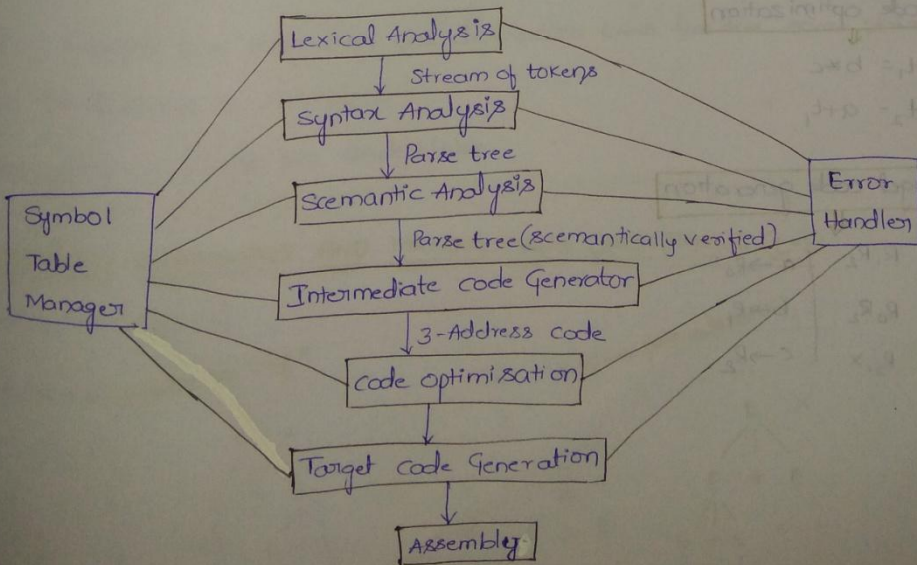 Lexical Analysis
Stream of tokens
Syntax Analysis
Parse tree
Scemantic Analysis
Parse tree (scemantically verified)
Intermediate code Generator
3-Address code
code optimisation
Target code Generation
Assembly
Symbol
Table
Manager
Error
Handler